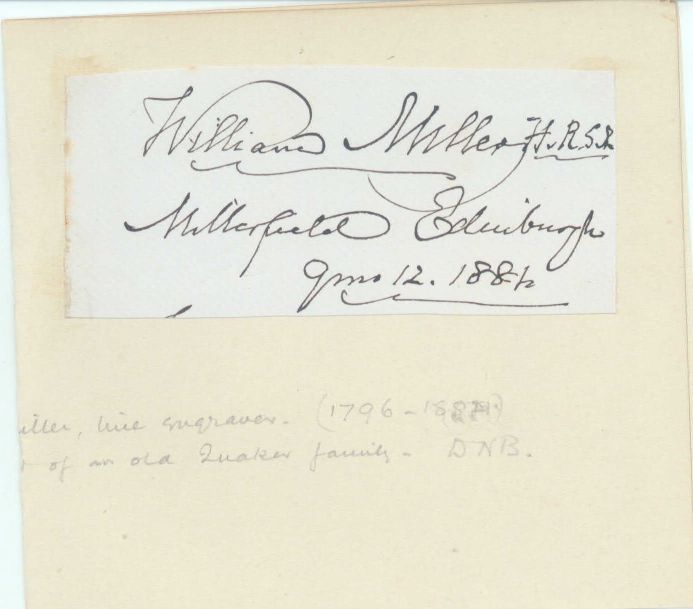 William Miller H.R.S.A.
Millerfield Edinburgh
9mo 12. 1881
iller, line engraver. (1796 -
of an old Quaker family. DNB.